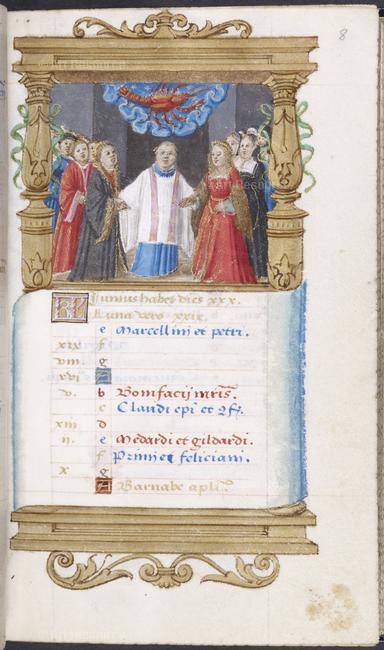 8
KL Junius habet dies xxx.
Luna vero xxix.
e Marcellini et petri.
xix f
viii. g
xvi A
v. b Bonifacij mris.
c Claudi epi et
xiii d
ii. e Medardi et gildardi.
f Primi et feliciani.
x g
A Barnabe apli.